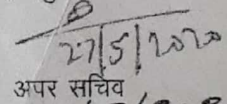 27/5/2020
अपर सचिव